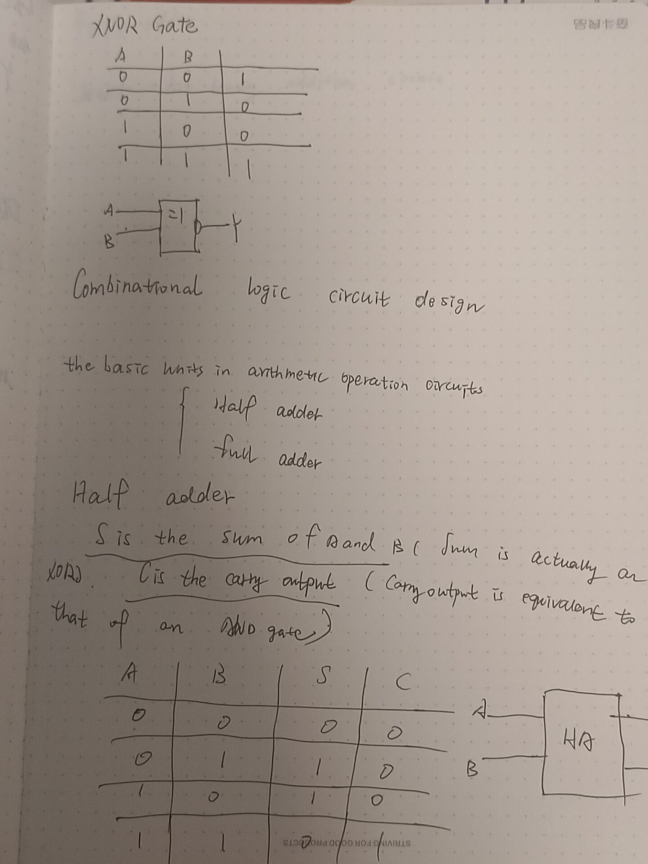 XNOR Gate
A B
0 0 1
0 1 0
1 0 0
1 1 1
A =1 Y
B
Combinational logic circuit design
the basic units in arithmetic operation circuits
Half adder
full adder
Half adder
S is the sum of A and B ( Sum is actually an
XOR). C is the carry output ( Carry output is equivalent to
that of an AND gate)
A B S C
0 0 0 0
0 1 1 0
1 0 1 0
1 1 0 1
A HA
B
STRIVING FOR GOOD PRODUCTS